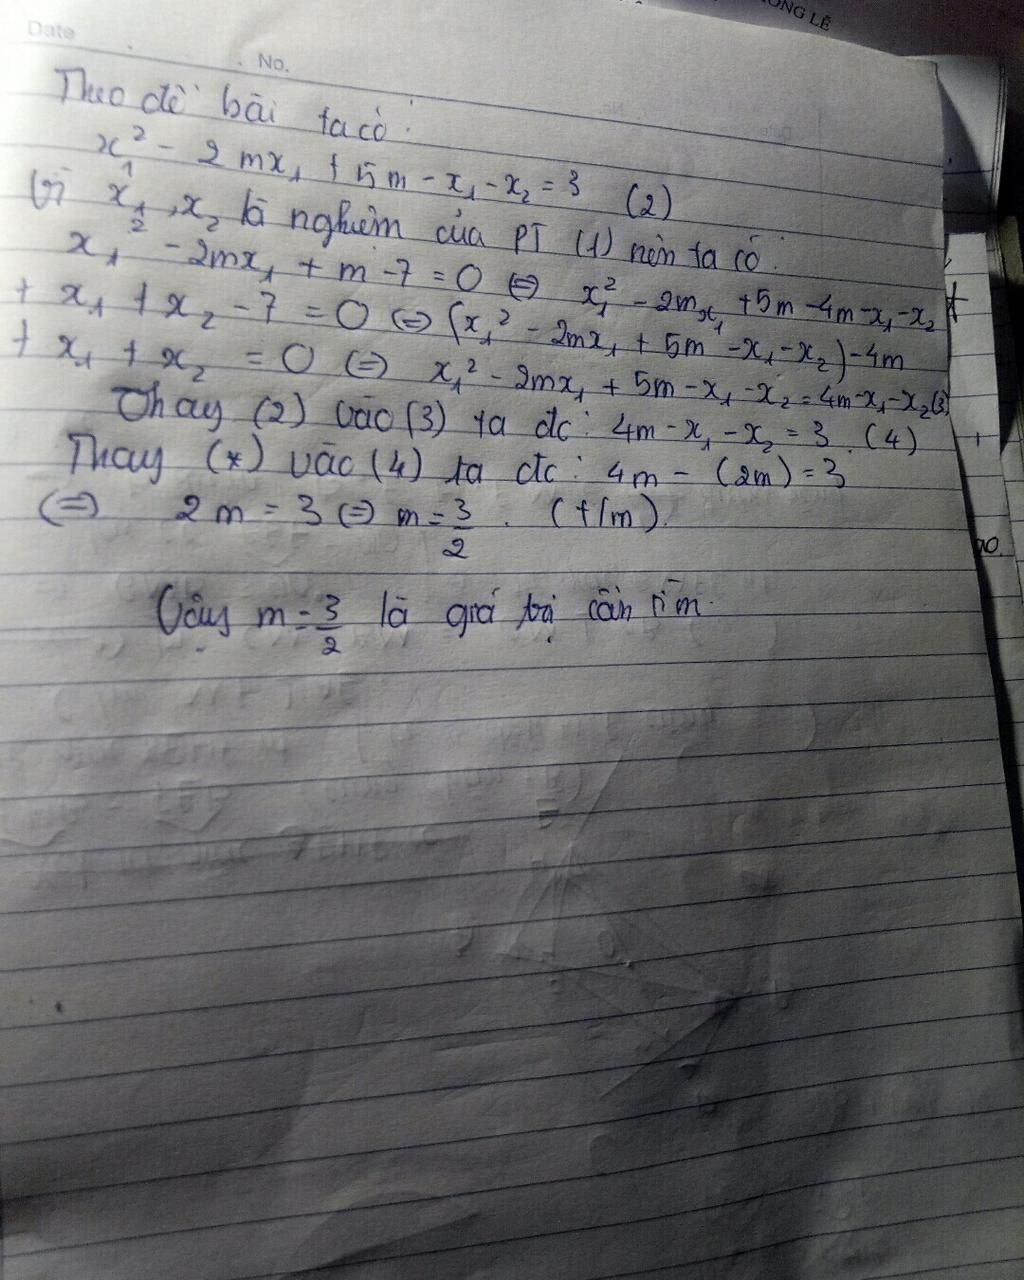 ONG LÊ
Date
No.
Theo đề bài ta có:
x₁² - 2mx₁ + 5m - x₁ - x₂ = 3 (2)
Vì x₁, x₂ là nghiệm của PT (1) nên ta có:
x₁² - 2mx₁ + m - 7 = 0 ⇔ x₁² - 2mx₁ + 5m - 4m - x₁ - x₂
+ x₁ + x₂ - 7 = 0 ⇔ (x₁² - 2mx₁ + 5m - x₁ - x₂) - 4m
+ x₁ + x₂ = 0 ⇔ x₁² - 2mx₁ + 5m - x₁ - x₂ = 4m - x₁ - x₂ (3)
Thay (2) vào (3) ta đc: 4m - x₁ - x₂ = 3 (4)
Thay (*) vào (4) ta đc: 4m - (2m) = 3
⇔ 2m = 3 ⇔ m = 3/2. (t/m).
Vậy m = 3/2 là giá trị cần tìm.